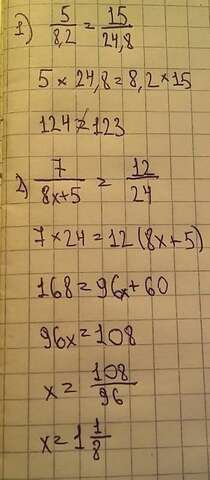 1) 5/8,2 = 15/24,8
5 × 24,8 = 8,2 × 15
124 ≠ 123
2) 7/8x+5 = 12/24
7 × 24 = 12 (8x + 5)
168 = 96x + 60
96x = 108
x = 108/96
x = 1 1/8